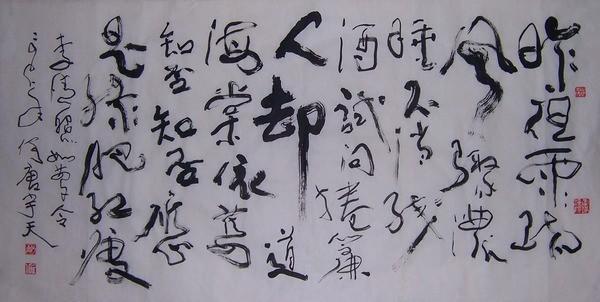 昨夜雨疏
风骤浓
睡不消残
酒试问捲簾
人却道
海棠依舊
知否知否應
是绿肥红瘦
李清照如梦令